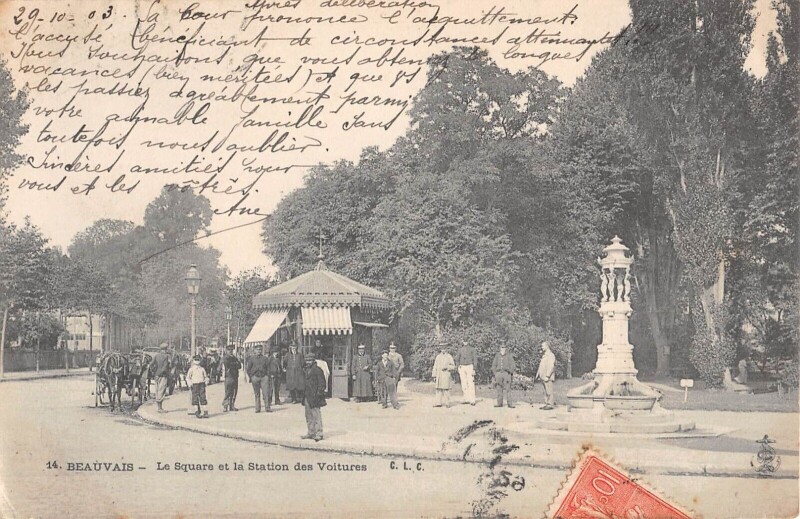 29-10-03. Après délibération
La Cour prononce l'acquittement.
l'accusé (bénéficiant de circonstances atténuantes)
Nous souhaitons que vous obteniez de longues
vacances (bien méritées) et que vs
les passiez agréablement parmi
votre aimable famille sans
toutefois nous oublier.
Sincères amitiés pour
vous et les vôtres.
14. BEAUVAIS – Le Square et la Station des Voitures C. L. C.
10